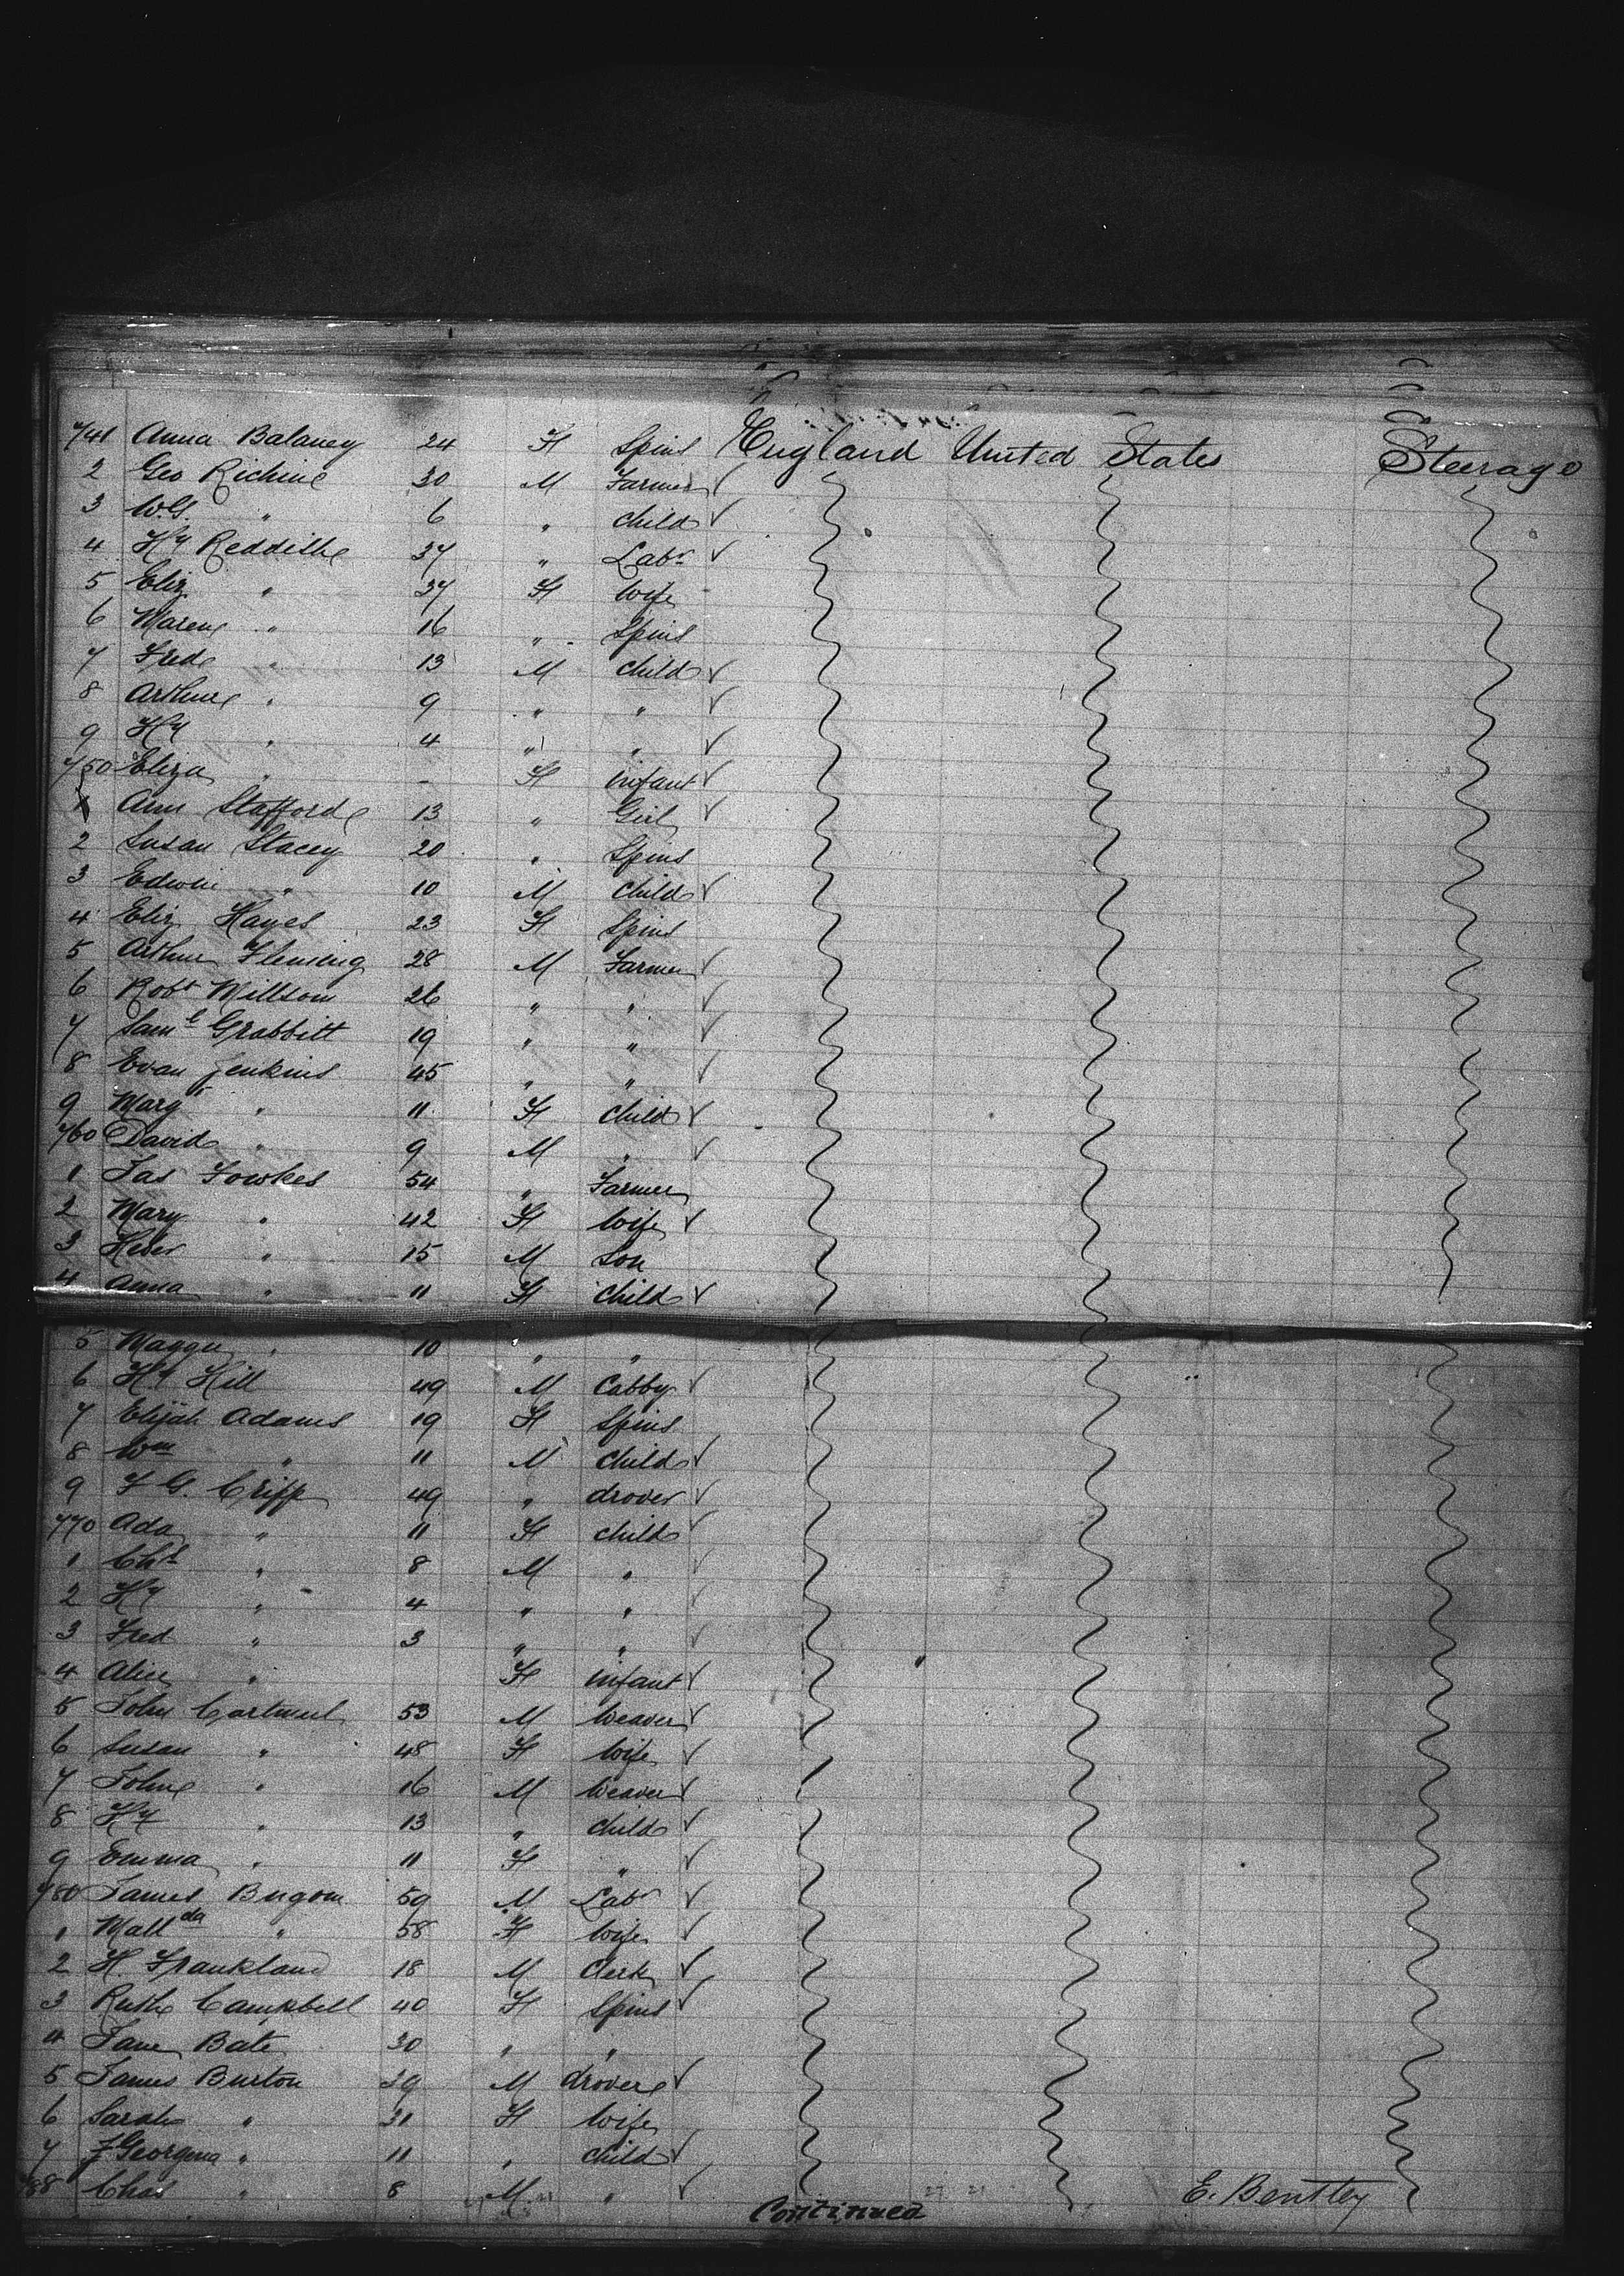 741 Anna Balaney 24 F Spins England United States Steerage
2 Geo Richine 30 M Farmer
3 W.G. " 6 " child
4 Hy Reddithe 37 " Labr
5 Eliz " 37 F Wife
6 " 16 " Spins
7 Fred " 13 M child
8 Arthur " 9 " "
9 Hy " 4 " "
750 Eliza " - F infant
1 Ann Stafford 13 " Girl
2 Susan Stacey 20 " Spins
3 Edwin " 10 M child
4 Eliz Hayes 23 F Spins
5 Arthur Fleming 28 M Farmer
6 Robt Millsom 26 " "
7 Saml Grabbitt 19 " "
8 Evan Jenkins 45 " "
9 Margt " 11 F child
760 David " 9 M "
1 Jas Fowkes 54 " Farmer
2 Mary " 42 F Wife
3 Heber " 15 M Son
4 Anna " 11 F child
5 Maggie " 10 " "
6 Hy Hill 49 M Cabby
7 Elijah Adams 19 F Spins
8 Wm " 11 M child
9 F G. Cripp 49 " drover
770 Ada " 11 F child
1 Chs " 8 M "
2 Hy " 4 " "
3 Fred " 3 " "
4 Alice " F infant
5 John Cartmel 53 M Weaver
6 Susan " 48 F Wife
7 John " 16 M Weaver
8 Hy " 13 " child
9 Emma " 11 F "
780 James Bugom 59 M Labr
1 Matlda " 58 F Wife
2 H. Frankland 18 M Clerk
3 Ruth Campbell 40 F Spins
4 Jane Bate 30 " "
5 James Burton 39 M drover
6 Sarah " 31 F Wife
7 Georgina " 11 " child
788 Chas " 8 M "
Continued E. Bentley